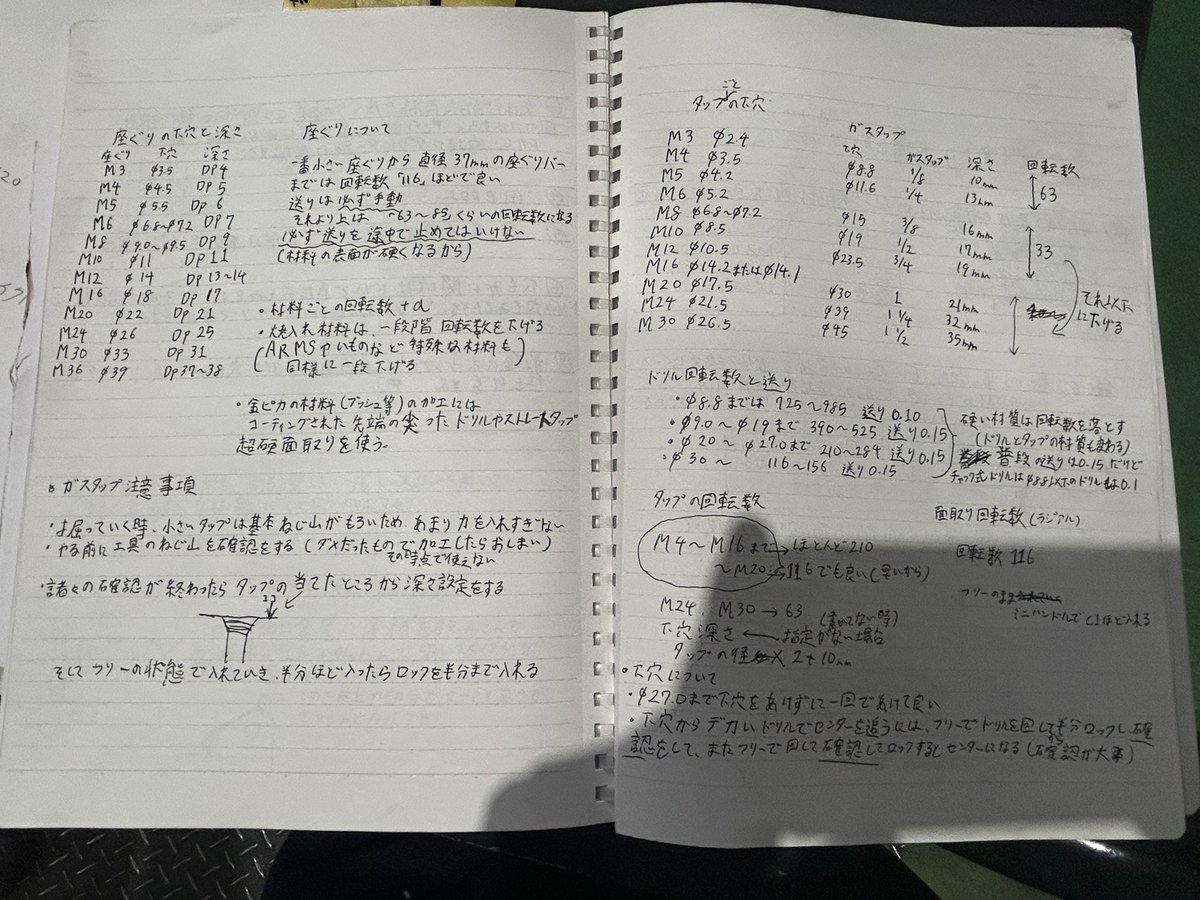 座ぐりの下穴と深さ
座ぐり 下穴 深さ
M3 φ3.5 DP4
M4 φ4.5 DP5
M5 φ5.5 DP6
M6 φ6.8~φ7.2 DP7
M8 φ9.0~φ9.5 DP9
M10 φ11 DP11
M12 φ14 DP13~14
M16 φ18 DP17
M20 φ22 DP21
M24 φ26 DP25
M30 φ33 DP31
M36 φ39 DP37~38
座ぐりについて
一番小さい座ぐりから直径37mmの座ぐりバー
までは回転数「116」ほどで良い
送りは必ず手動
それより上は "63~85"くらいの回転数になる
必ず送りを途中で止めてはいけない
(材料の表面が硬くなるから)
・材料ごとの回転数+α
・焼入れ材料は、一段階回転数を下げる
(ARMSやいものなど特殊な材料も
同様に一段下げる)
・金ピカの材料(ブッシュ等)の加工には
コーティングされた先端の尖ったドリルやストレートタップ
超硬面取りを使う。
○ガスタップ注意事項
・よ掘っていく時、小さいタップは基本ねじ山がもろいため、あまり力を入れすぎない
・やる前に工具のねじ山を確認をする(ダメだったもので加工したらおしまい)
その時点で使えない
・諸々の確認が終わったらタップの当てたところから深さ設定をする
ココ
そしてフリーの状態で入れていき、半分ほど入ったらロックを半分まで入れる
ごと
タップの下穴
M3 φ2.4
M4 φ3.5
M5 φ4.2
M6 φ5.2
M8 φ6.8~φ7.2
M10 φ8.5
M12 φ10.5
M16 φ14.2またはφ14.1
M20 φ17.5
M24 φ21.5
M30 φ26.5
ガスタップ
下穴 ガスタップ 深さ 回転数
φ8.8 1/8 10mm
φ11.6 1/4 13mm
63
φ15 3/8 16mm
φ19 1/2 17mm
φ23.5 3/4 19mm
33
φ30 1 21mm
φ39 1 1/4 32mm
φ45 1 1/2 35mm
それ以下
に下げる
ドリル回転数と送り
・φ8.8までは 725~985 送り0.10
・φ9.0~φ19まで 390~525 送り0.15
・φ20~φ27.0まで 210~284 送り0.15
・φ30~ 116~156 送り0.15
硬い材質は回転数を落とす
(ドリルとタップの材質も変わる)
普段の送りは0.15だけど
チャック式ドリルはφ8.8以下のドリルは0.1
タップの回転数
M4~M16まで→ほとんど210
~M20→116でも良い(早いから)
M24、M30→63
(書めてない時)
下穴深さ←指定がない場合
タップの径×2+10mm
面取り回転数(ラジアル)
回転数 116
フリーのまま
ミニハンドルでC1ほど入れる
・下穴について
・φ27.0まで下穴をあけずに一回であけて良い
・下穴からデカいドリルでセンターを追うには、フリーでドリルを回して半分ロックし確
認をして、またフリーで回して確認してロックするとセンターになる(確認が大事)
から